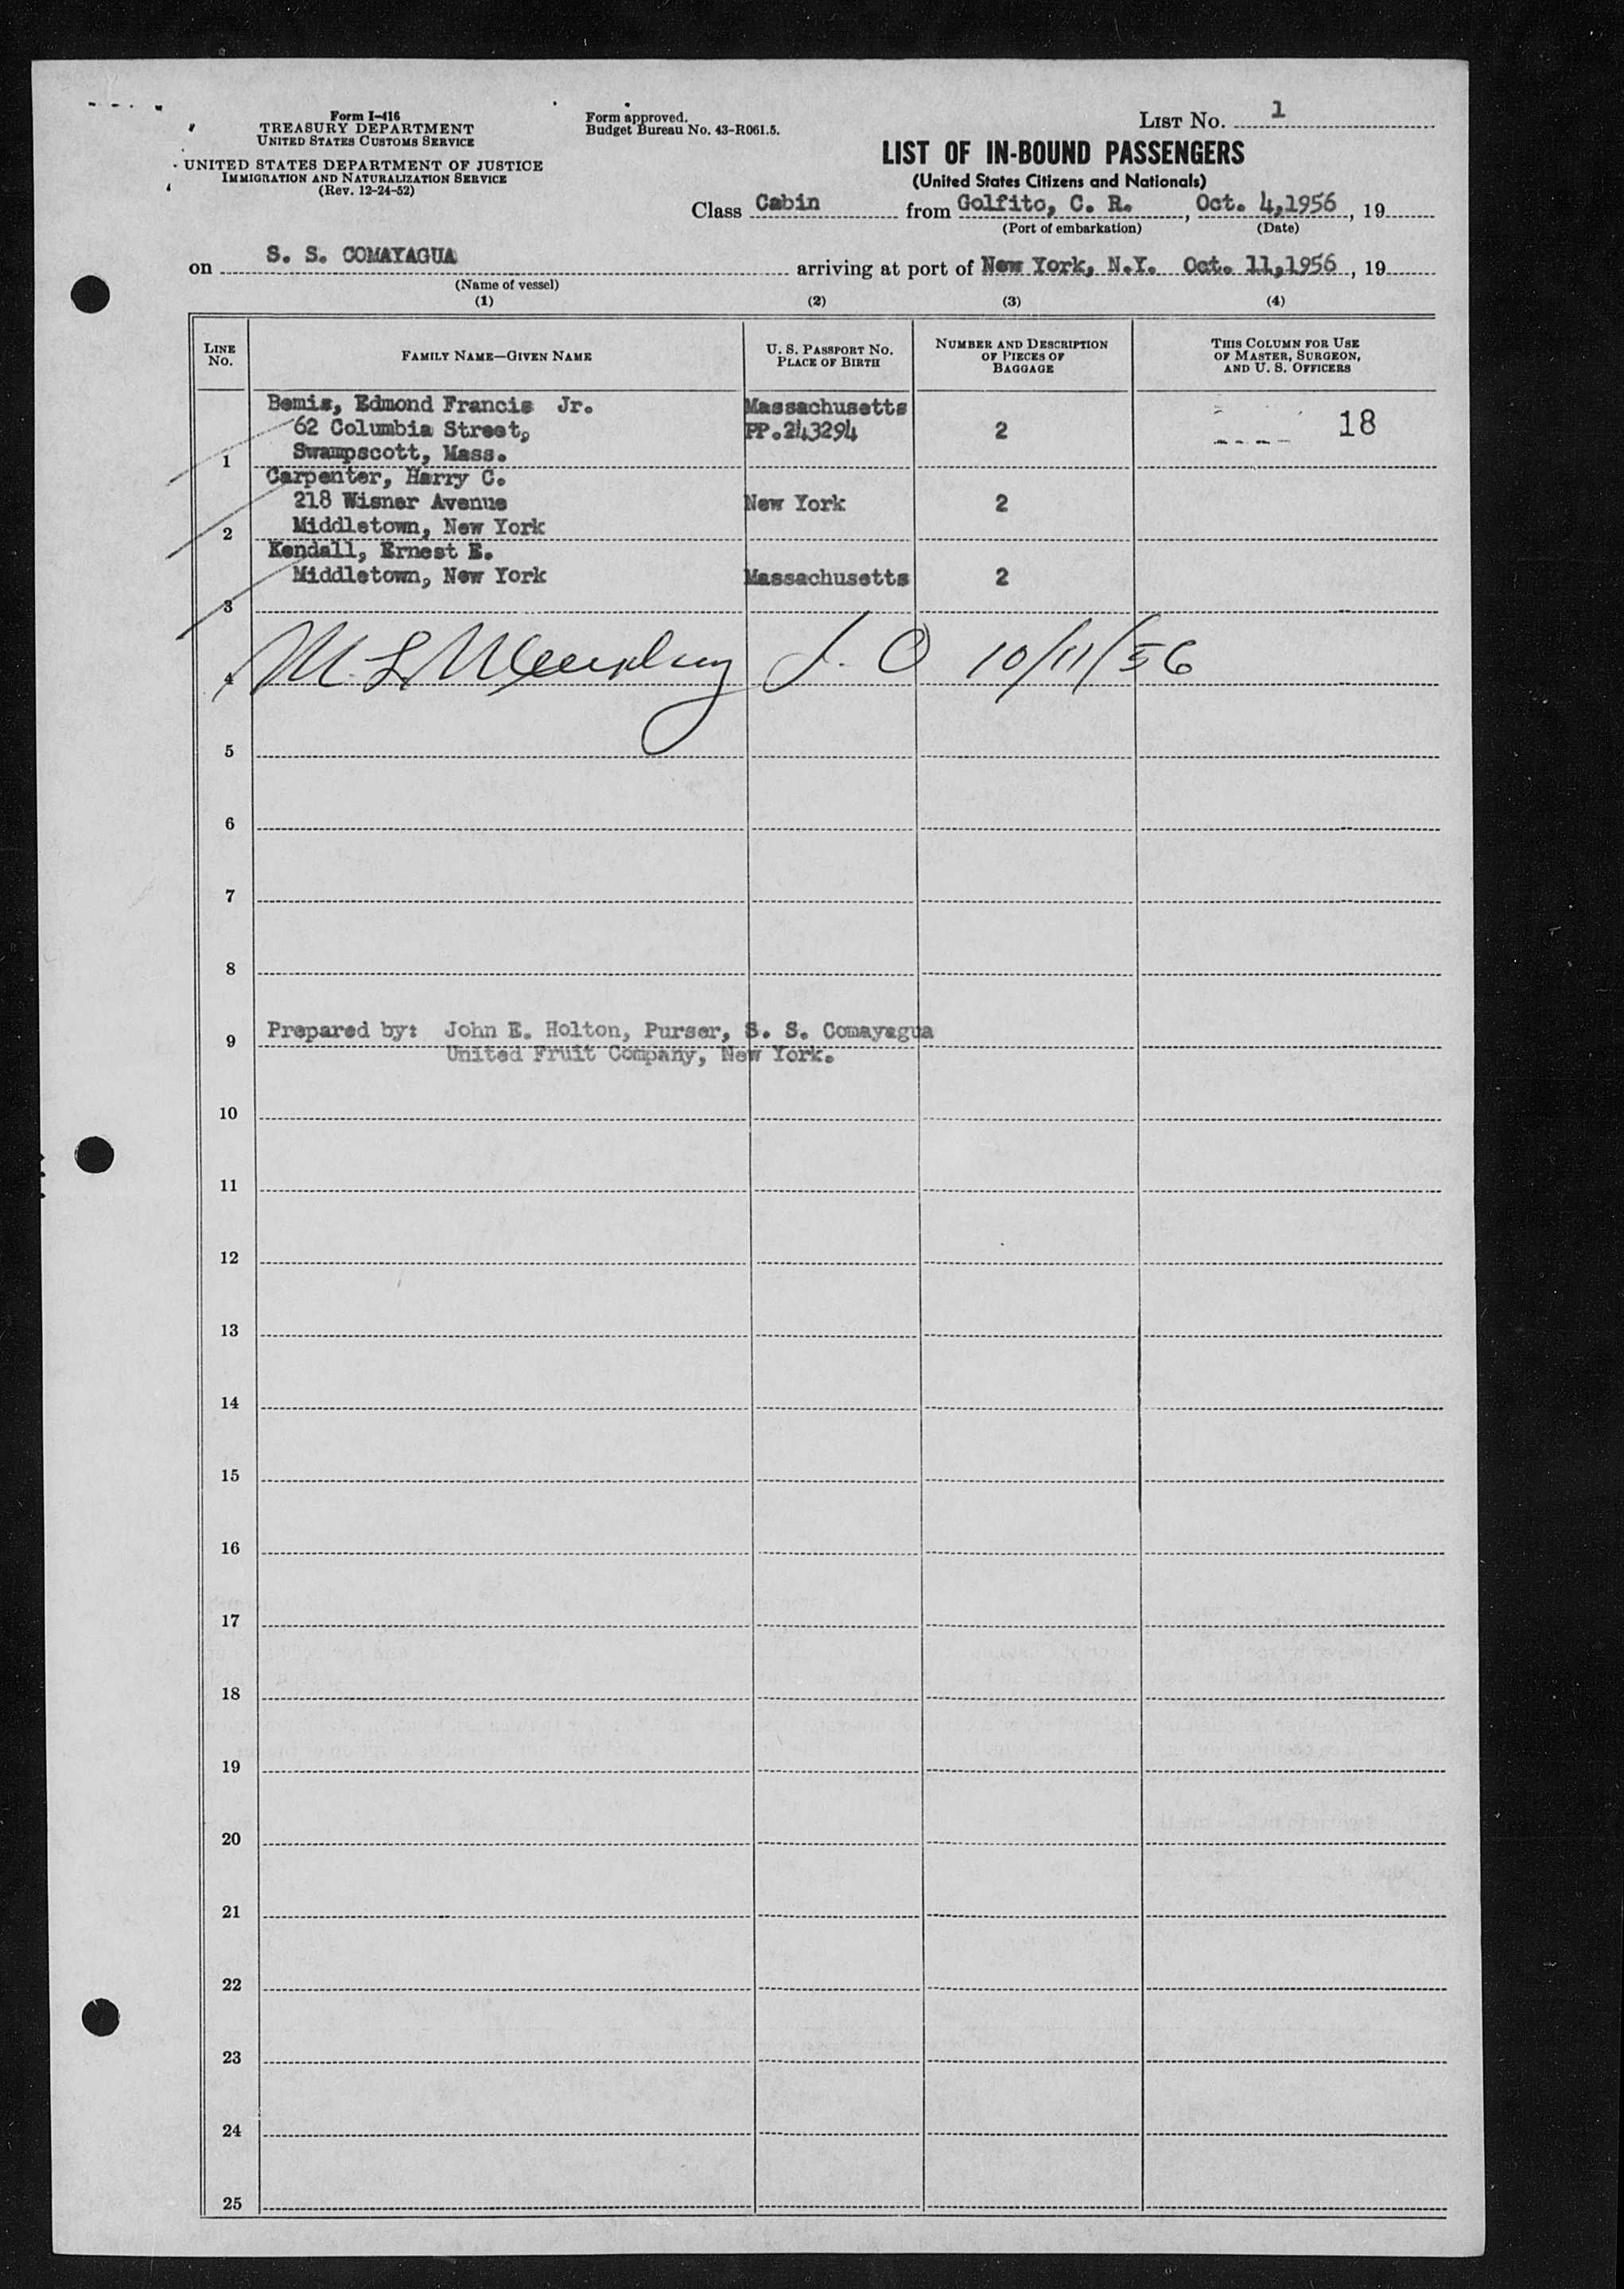 Form I-416
TREASURY DEPARTMENT
UNITED STATES CUSTOMS SERVICE
UNITED STATES DEPARTMENT OF JUSTICE
IMMIGRATION AND NATURALIZATION SERVICE
(Rev. 12-24-52)
Form approved.
Budget Bureau No. 43-R061.5.
LIST No. 1
LIST OF IN-BOUND PASSENGERS
(United States Citizens and Nationals)
Class Cabin from Golfito, C. R. , Oct. 4,1956 , 19
(Port of embarkation) (Date)
on S. S. COMAYAGUA arriving at port of New York, N.Y. Oct. 11,1956 , 19
(Name of vessel)
(1) (2) (3) (4)
LINE No. FAMILY NAME—GIVEN NAME U. S. PASSPORT NO. PLACE OF BIRTH NUMBER AND DESCRIPTION OF PIECES OF BAGGAGE THIS COLUMN FOR USE OF MASTER, SURGEON, AND U. S. OFFICERS
Bemis, Edmond Francis Jr. Massachusetts
62 Columbia Street, PP.243294 2 18
1 Swampscott, Mass.
Carpenter, Harry C.
218 Wisner Avenue New York 2
2 Middletown, New York
Kendall, Ernest E.
Middletown, New York Massachusetts 2
3
4 M. L. 10/11/56
5
6
7
8
9 Prepared by: John E. Holton, Purser, S. S. Comayagua
United Fruit Company, New York.
10
11
12
13
14
15
16
17
18
19
20
21
22
23
24
25